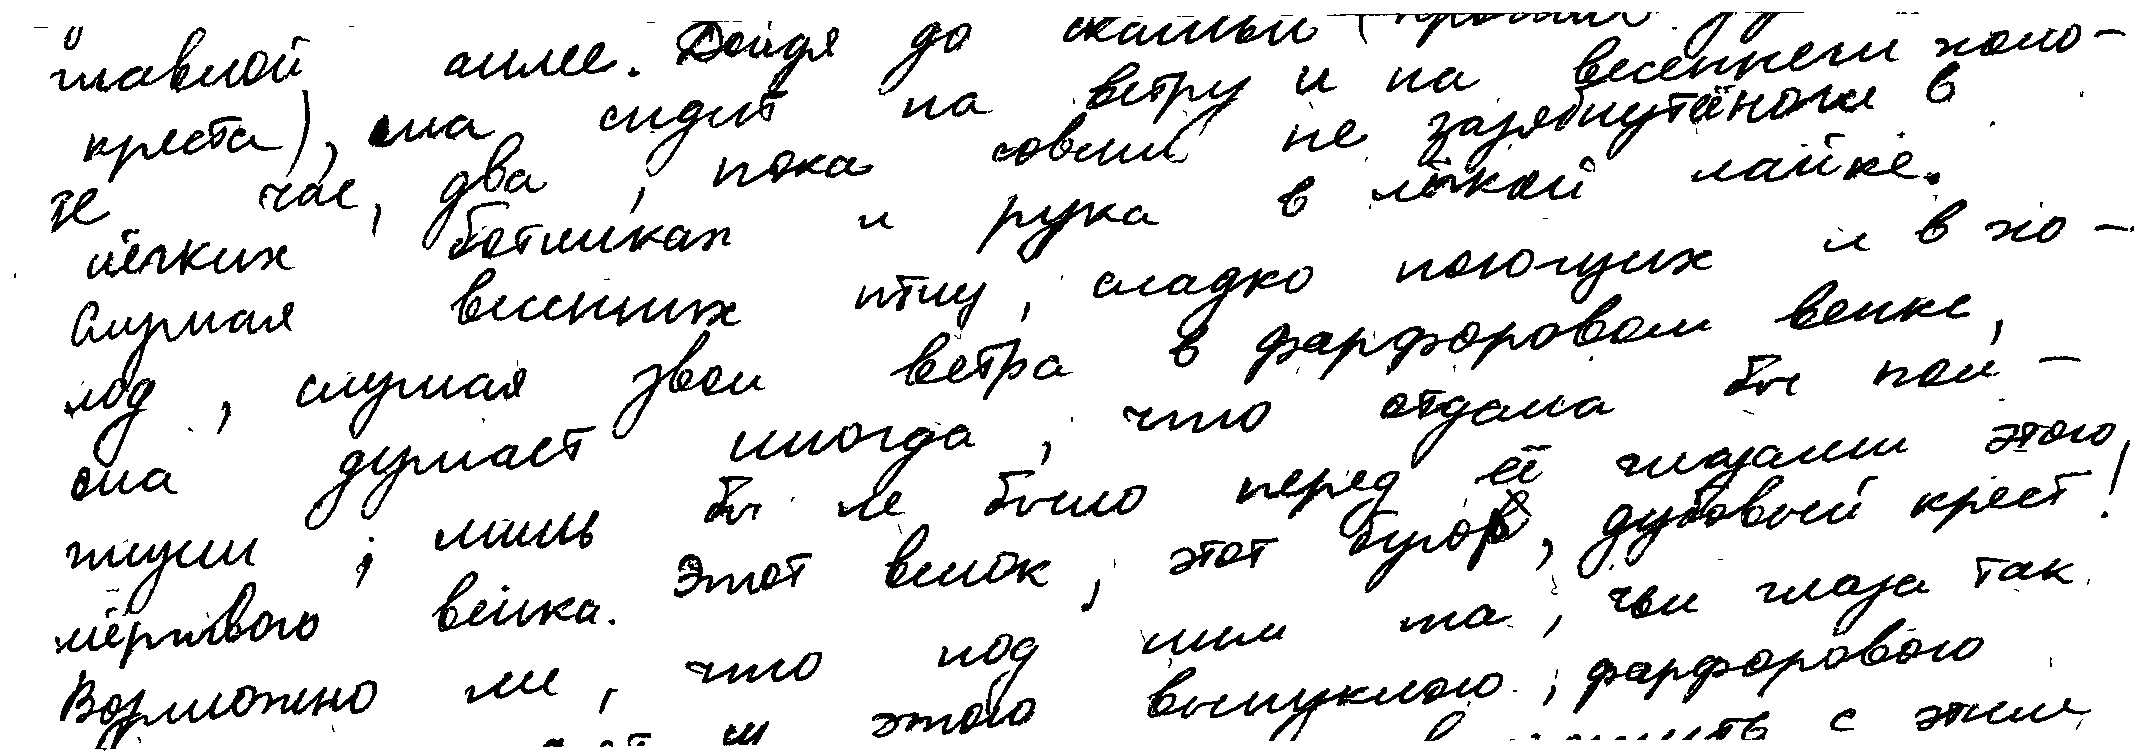 главной аллее. Дойдя до скамьи (против ду
креста), она сидит на ветру и на весеннем холо-
де час, два, пока совсем не зазябнут её ноги в
лёгких ботинках и рука в узкой лайке.
Слушая весенних птиц, сладко поющих и в хо-
лод, слушая звон ветра в фарфоровом венке,
она думает иногда, что отдала бы пол-
жизни, лишь бы не было перед её глазами этого
мёртвого венка. Этот венок, этот бугор, дубовый крест!
Возможно ли, что под ним та, чьи глаза так
этого выпуклого, фарфорового
с этим